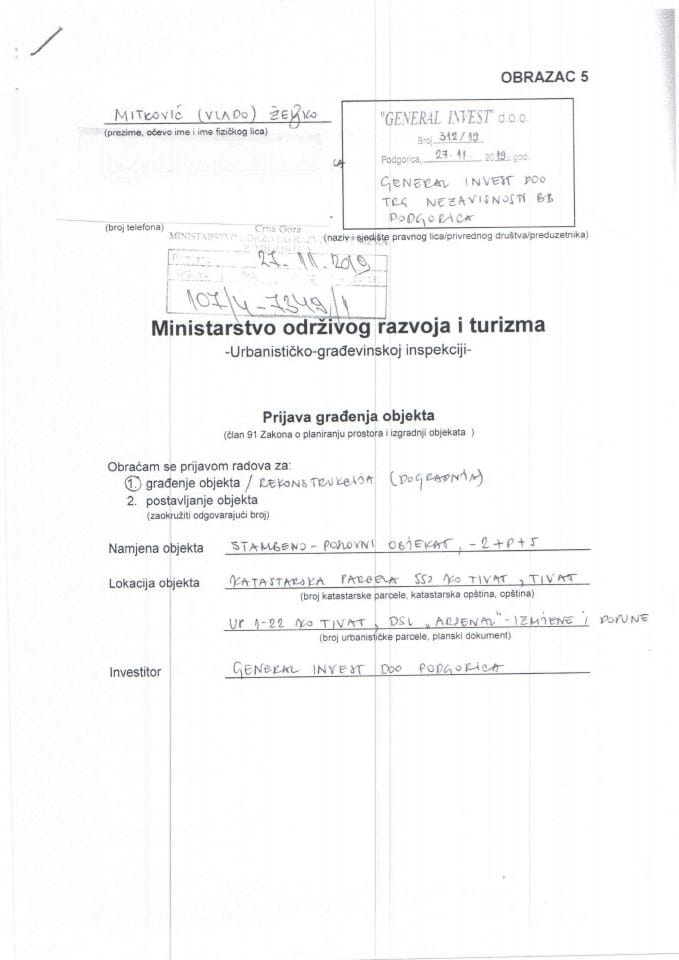 OBRAZAC 5
MITKOVIĆ (VLADO) ŽELJKO
(prezime, očevo ime i ime fizičkog lica)
"GENERAL INVEST" d.o.o.
Broj 312/19
Podgorica, 27.11. 2019 god.
GENERAL INVEST DOO
TRG NEZAVISNOSTI BB
PODGORICA
(broj telefona)
(naziv i sjedište pravnog lica/privrednog društva/preduzetnika)
Crna Gora
MINISTARSTVO ODRŽIVOG
27.11.2019
107/4-7349/1
Ministarstvo održivog razvoja i turizma
-Urbanističko-građevinskoj inspekciji-
Prijava građenja objekta
(član 91 Zakona o planiranju prostora i izgradnji objekata )
Obraćam se prijavom radova za:
1. građenje objekta / REKONSTRUKCIJA (DOGRADNJA)
2. postavljanje objekta
(zaokružiti odgovarajući broj)
Namjena objekta STAMBENO-POSLOVNI OBJEKAT, -2+P+5
Lokacija objekta KATASTARSKA PARCELA 550 KO TIVAT, TIVAT
(broj katastarske parcele, katastarska opština, opština)
UP 1-22 KO TIVAT, DSL „ARSENAL"-IZMJENE I DOPUNE
(broj urbanističke parcele, planski dokument)
Investitor GENERAL INVEST DOO PODGORICA